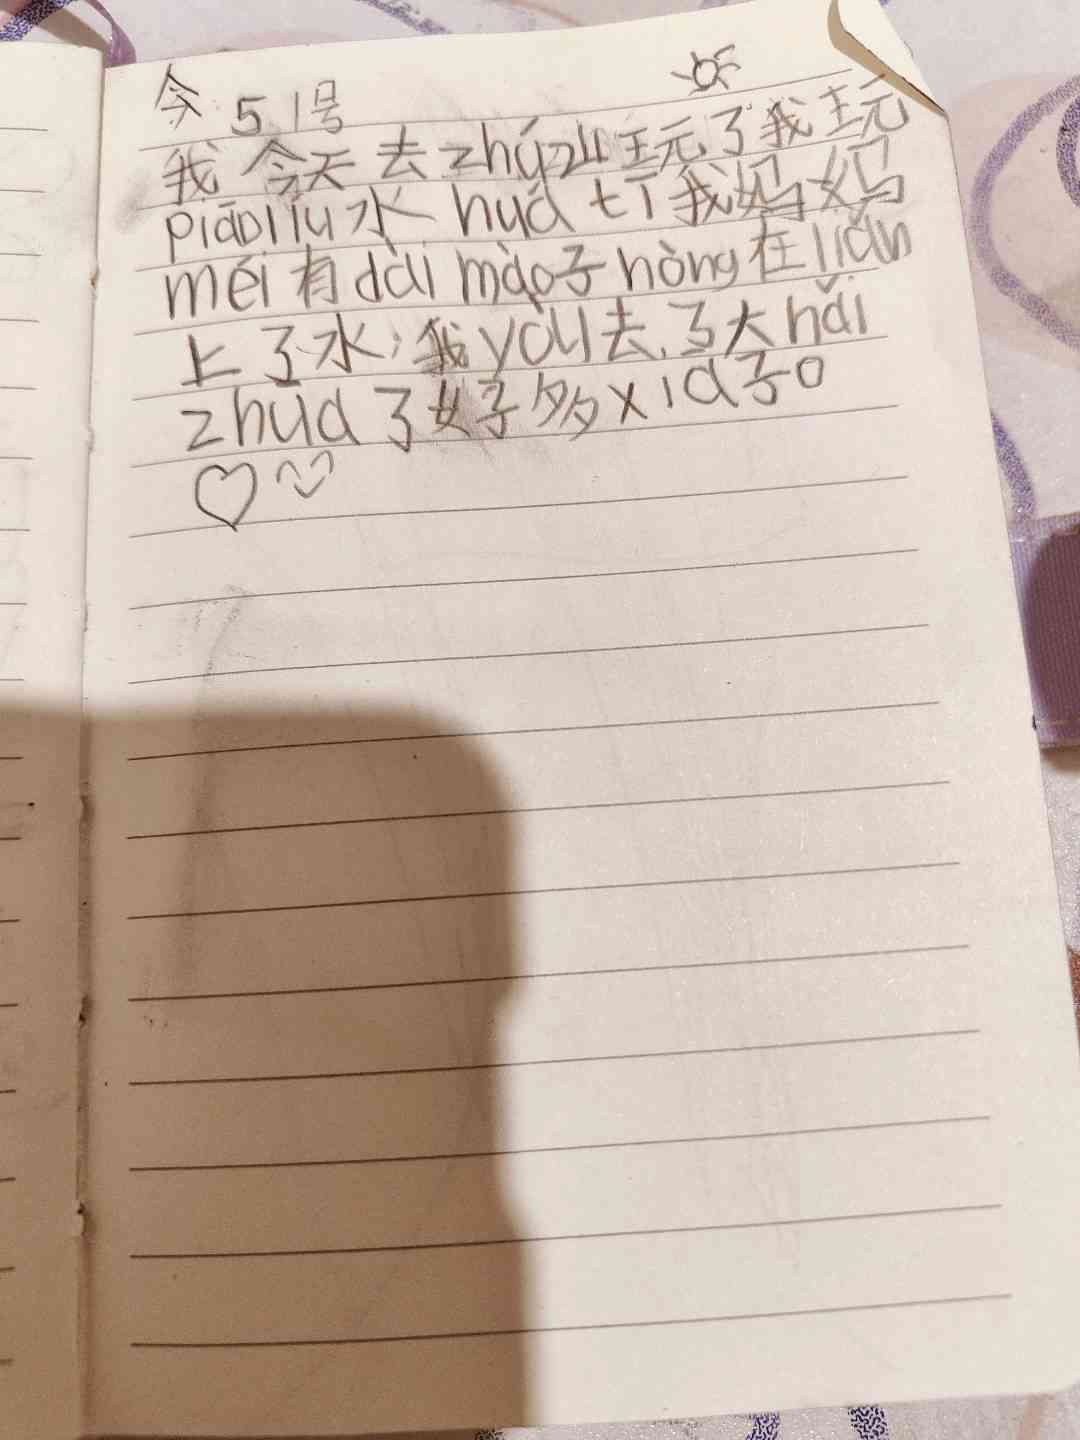 今 5 1号
我 今天 去 zhú山 玩了我玩
piāoliú水 huá tī 我妈妈
méi 有 dài mào子 nòng 在 liǎn
上了水，我 yòu 去了大 hǎi
zhuā 了好多 xiā 子。